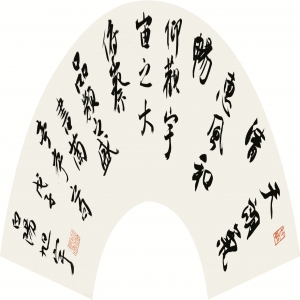 天朗氣
清
惠風和
暢
仰觀宇
宙之大
俯察
品類之盛
書蘭
旭宇